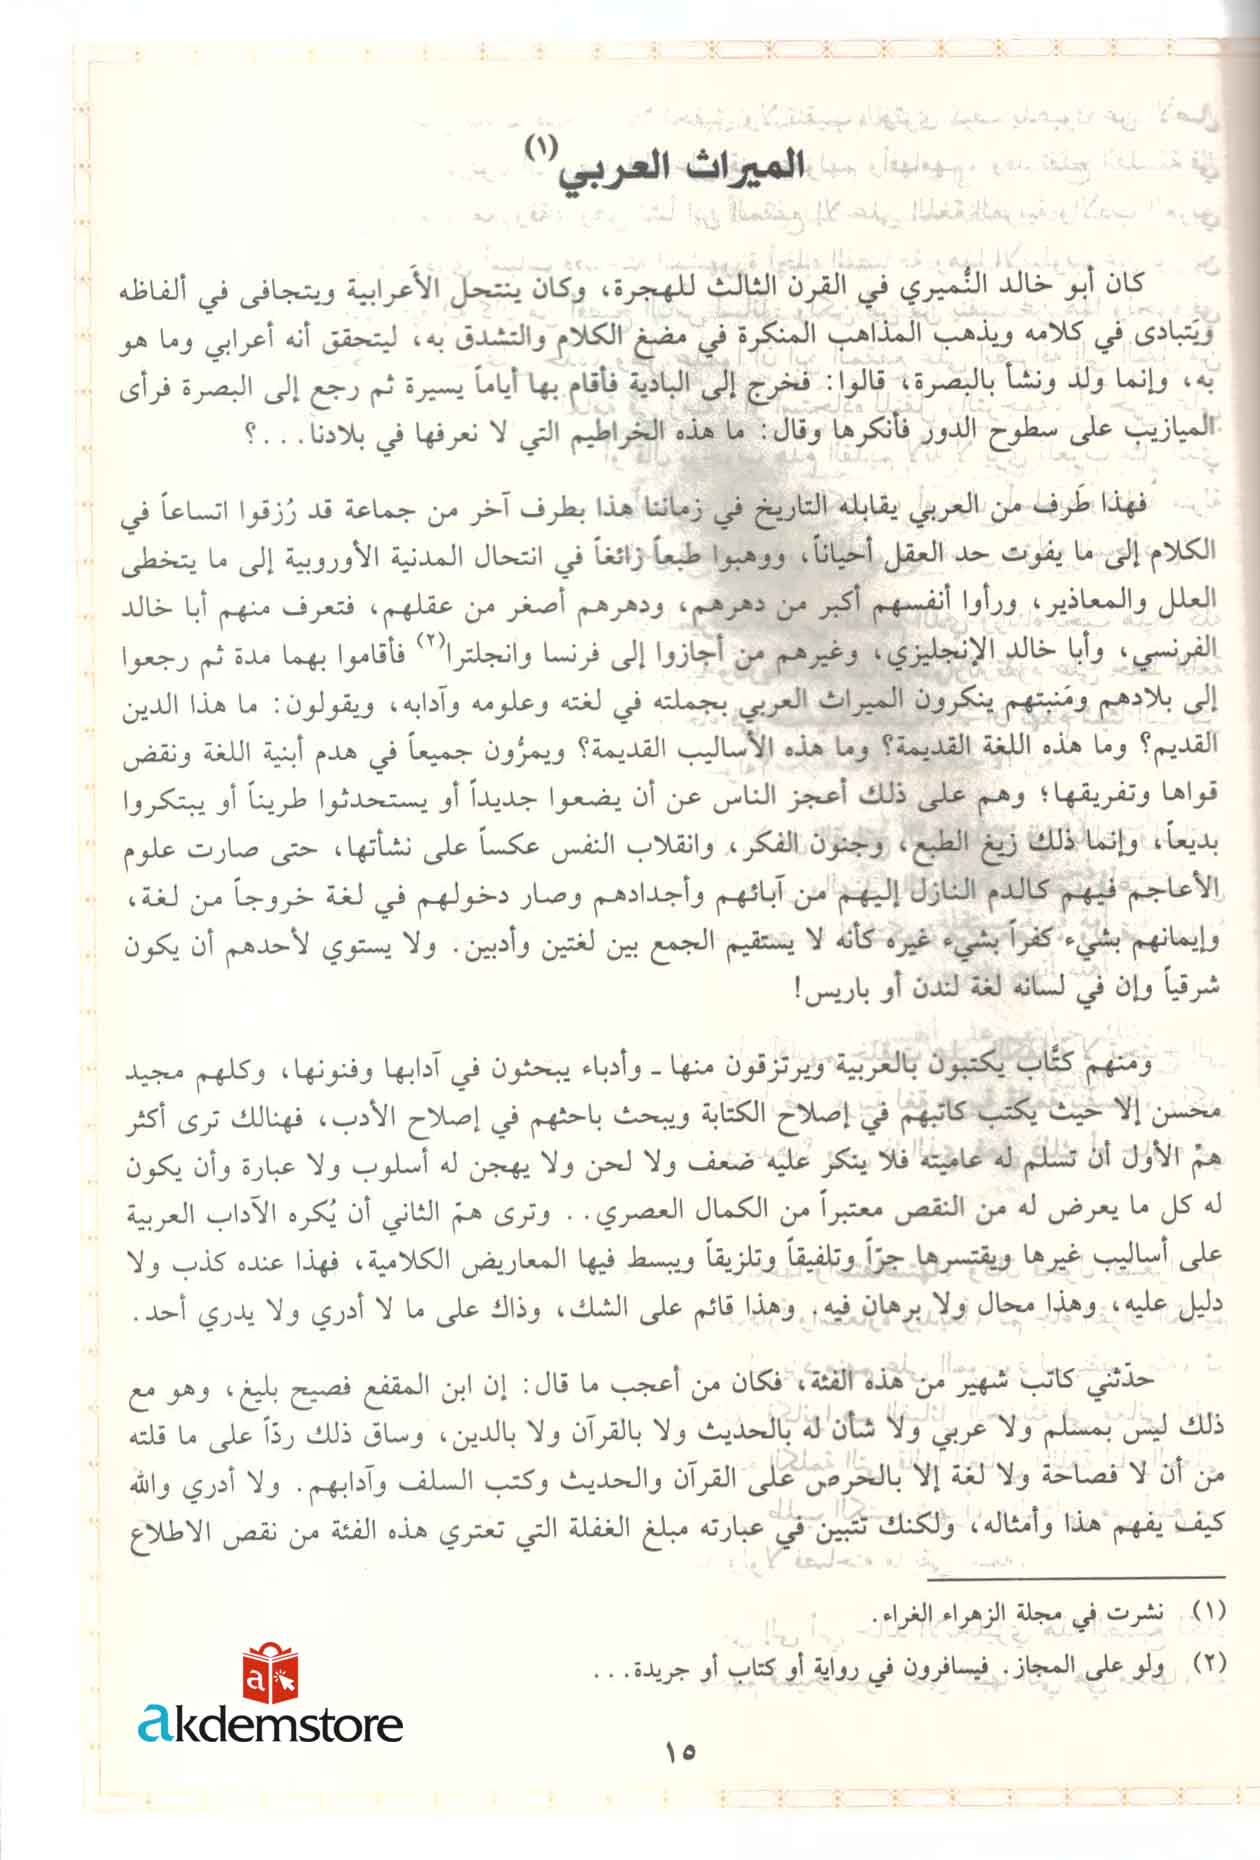 الميراث العربي(١)
كان أبو خالد النُّميري في القرن الثالث للهجرة، وكان ينتحل الأَعرابية ويتجافى في ألفاظه
ويَتبادى في كلامه ويذهب المذاهب المنكرة في مضغ الكلام والتشدق به، ليتحقق أنه أعرابي وما هو
به، وإنما ولد ونشأ بالبصرة، قالوا: فخرج إلى البادية فأقام بها أياماً يسيرة ثم رجع إلى البصرة فرأى
الميازيب على سطوح الدور فأنكرها وقال: ما هذه الخراطيم التي لا نعرفها في بلادنا...؟
فهذا طَرف من العربي يقابله التاريخ في زماننا هذا بطرف آخر من جماعة قد رُزقوا اتساعاً في
الكلام إلى ما يفوت حد العقل أحياناً، ووهبوا طبعاً زائغاً في انتحال المدنية الأوروبية إلى ما يتخطى
العلل والمعاذير، ورأوا أنفسهم أكبر من دهرهم، ودهرهم أصغر من عقلهم، فتعرف منهم أبا خالد
الفرنسي، وأبا خالد الإنجليزي، وغيرهم من أجازوا إلى فرنسا وانجلترا(٢) فأقاموا بهما مدة ثم رجعوا
إلى بلادهم ومَنبتهم ينكرون الميراث العربي بجملته في لغته وعلومه وآدابه، ويقولون: ما هذا الدين
القديم؟ وما هذه اللغة القديمة؟ وما هذه الأساليب القديمة؟ ويمرُّون جميعاً في هدم أبنية اللغة ونقض
قواها وتفريقها؛ وهم على ذلك أعجز الناس عن أن يضعوا جديداً أو يستحدثوا طريفاً أو يبتكروا
بديعاً، وإنما ذلك زيغ الطبع، وجنون الفكر، وانقلاب النفس عكساً على نشأتها، حتى صارت علوم
الأعاجم فيهم كالدم النازل إليهم من آبائهم وأجدادهم وصار دخولهم في لغة خروجاً من لغة،
وإيمانهم بشيء كفراً بشيء غيره كأنه لا يستقيم الجمع بين لغتين وأدبين. ولا يستوي لأحدهم أن يكون
شرقياً وإن في لسانه لغة لندن أو باريس!
ومنهم كتَّاب يكتبون بالعربية ويرتزقون منها - وأدباء يبحثون في آدابها وفنونها، وكلهم مجيد
محسن إلا حيث يكتب كاتبهم في إصلاح الكتابة ويبحث باحثهم في إصلاح الأدب، فهنالك ترى أكثر
همّ الأول أن تسلم له عاميته فلا ينكر عليه ضعف ولا لحن ولا يهجن له أسلوب ولا عبارة وأن يكون
له كل ما يعرض له من النقص معتبراً من الكمال العصري.. وترى همّ الثاني أن يُكره الآداب العربية
على أساليب غيرها ويقتسرها جرّاً وتلفيقاً وتلزيقاً ويبسط فيها المعاريض الكلامية، فهذا عنده كذب ولا
دليل عليه، وهذا محال ولا برهان فيه. وهذا قائم على الشك، وذاك على ما لا أدري ولا يدري أحد.
حدّثني كاتب شهير من هذه الفئة، فكان من أعجب ما قال: إن ابن المقفع فصيح بليغ، وهو مع
ذلك ليس بمسلم ولا عربي ولا شأن له بالحديث ولا بالقرآن ولا بالدين، وساق ذلك ردّاً على ما قلته
من أن لا فصاحة ولا لغة إلا بالحرص على القرآن والحديث وكتب السلف وآدابهم. ولا أدري والله
كيف يفهم هذا وأمثاله، ولكنك تتبين في عبارته مبلغ الغفلة التي تعتري هذه الفئة من نقص الاطلاع
(١) نشرت في مجلة الزهراء الغراء.
(٢) ولو على المجاز. فيسافرون في رواية أو كتاب أو جريدة...
a
akdemstore
١٥